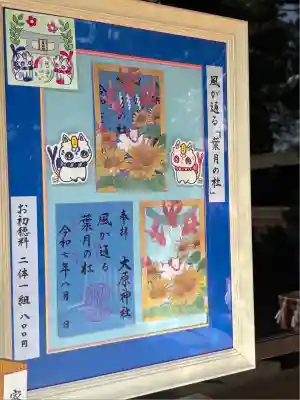 風が通る「葉月の杜」
奉拝 大原神社
風が通る
葉月の杜
令和七年八月 日
お初穂料 二体一組 八〇〇円